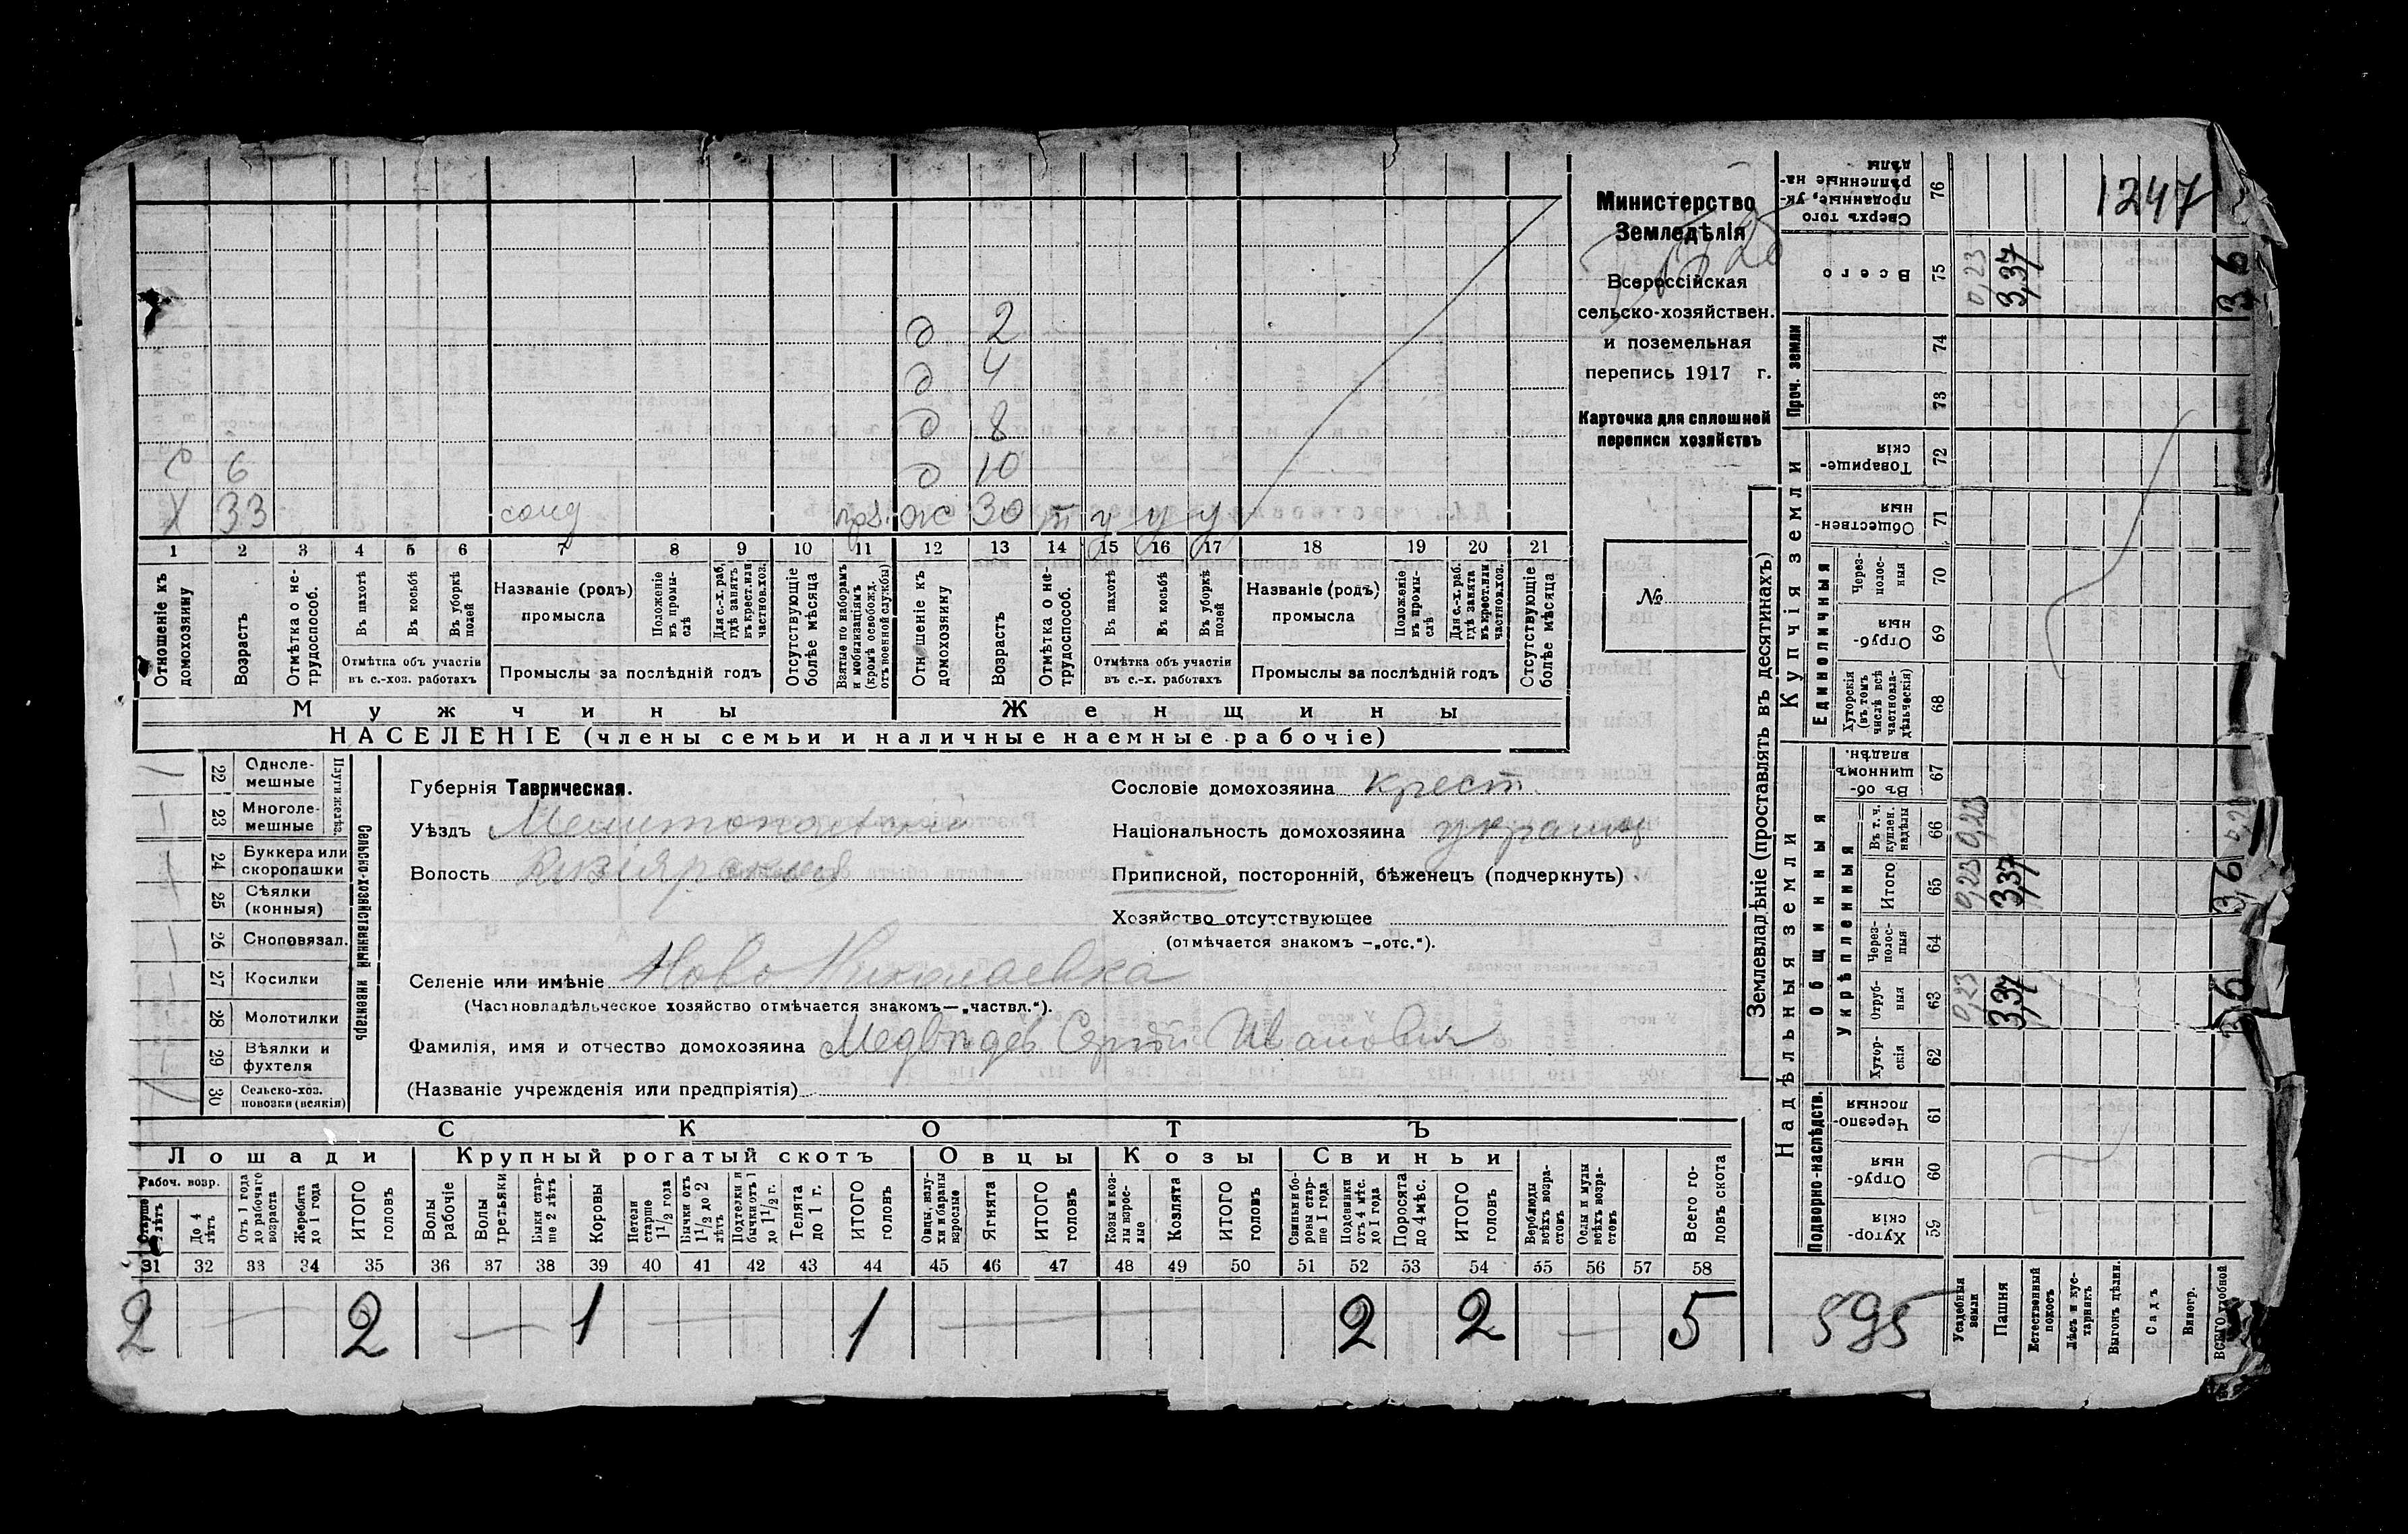 Министерство
Земледѣлія
Всероссійская
сельско-хозяйствен.
и поземельная
перепись 1917 г.
Карточка для сплошной
переписи хозяйствъ
№
1247
д 2
д 4
д 8
с 6 д 10
Х 33 солд ж 30 у у у
1 2 3 4 5 6 7 8 9 10 11 12 13 14 15 16 17 18 19 20 21
Отношеніе къ домохозяину
Возрастъ
Отмѣтка о не-трудоспособ.
Въ пахотѣ
Въ косьбѣ
Въ уборкѣ полей
Отмѣтка объ участіи
въ с.-хоз. работахъ
Названіе (родъ)
промысла
Положеніе въ промы-слѣ
Для с.-х. раб. гдѣ занятъ въ крест. или частнов. хоз.
Промыслы за послѣдній годъ
Отсутствующіе болѣе мѣсяца
Взятые по наборамъ и мобилизаціямъ (кромѣ освобожд. отъ военной службы)
Отношеніе къ домохозяину
Возрастъ
Отмѣтка о не-трудоспособ.
Въ пахотѣ
Въ косьбѣ
Въ уборкѣ полей
Отмѣтка объ участіи
въ с.-х. работахъ
Названіе (родъ)
промысла
Положеніе въ промы-слѣ
Для с.-х. раб. гдѣ занята въ крест. или частнов. хоз.
Промыслы за послѣдній годъ
Отсутствующіе болѣе мѣсяца
Мужчины Женщины
НАСЕЛЕНІЕ (члены семьи и наличные наемные рабочіе)
22 Однолемешные
23 Многолемешные
24 Буккера или скоропашки
25 Сѣялки (конныя)
26 Сноповязал.
27 Косилки
28 Молотилки
29 Вѣялки и фухтеля
30 Сельско-хоз. повозки (всякія)
Плуги желѣз.
Сельско-хозяйственный инвентарь
Губернія Таврическая.
Уѣздъ Мелитопольскій
Волость Кизіярская
Сословіе домохозяина крест.
Національность домохозяина украинц
Приписной, посторонній, бѣженецъ (подчеркнуть)
Хозяйство отсутствующее
(отмѣчается знакомъ —„отс.“).
Селеніе или имѣніе Ново Николаевка
(Частновладѣльческое хозяйство отмѣчается знакомъ—„частвл.“).
Фамилія, имя и отчество домохозяина Медвѣдев Сергѣй Иванович
(Названіе учрежденія или предпріятія)
СКОТЪ
Лошади Крупный рогатый скотъ Овцы Козы Свиньи
Рабоч. возр.
Старше 4 лѣтъ
До 4 лѣтъ
Отъ 1 года до рабочаго возраста
Жеребята до 1 года
ИТОГО головъ
Волы рабочіе
Волы третьяки
Быки старше 2 лѣтъ
Коровы
Нетели старше 1 1/2 года
Бычки отъ 1 1/2 до 2 лѣтъ
Подтелки и бычки отъ 1 до 1 1/2 г.
Телята до 1 г.
ИТОГО головъ
Овцы, валухи и бараны взрослые
Ягнята
ИТОГО головъ
Козы и козлы взрослые
Козлята
ИТОГО головъ
Свиньи и боровы старше 1 года
Подсвинки отъ 4 мѣс. до 1 года
Поросята до 4 мѣс.
ИТОГО головъ
Верблюды всѣхъ возрастовъ
Ослы и мулы всѣхъ возрастовъ
Всего головъ скота
31 32 33 34 35 36 37 38 39 40 41 42 43 44 45 46 47 48 49 50 51 52 53 54 55 56 57 58
2 — 2 — 1 — 1 — 2 2 — 5
595
Землевладѣніе (проставлять въ десятинахъ)
Надѣльныя земли
Купчія земли
Проч. земли
Подворно-наслѣдств.
Общинныя
Укрѣпленныя
Единоличныя
Хуторскія 59
Отрубныя 60
Черезполосныя 61
Хуторскія 62
Отрубныя 63 0,23 3,37 3,6
Черезполосныя 64
Итого 65 0,23 3,37 3,6
Въ т. ч. куплен. надѣлы 66 0,23
Въ общинномъ владѣн. 67
Хуторскія (въ томъ числѣ всѣ частновладѣльческія) 68
Отрубныя 69
Черезполосныя 70
Общественныя 71
Товарищескія 72
73
74
Всего 75 0,23 3,37 3 6
Сверхъ того проданные, укрѣпленные надѣлы 76
Усадебныя земли
Пашня
Естественный покосъ
Лѣсъ и кустарникъ
Выгонъ цѣлин.
Садъ
Виногр.
ВСЕГО удобной